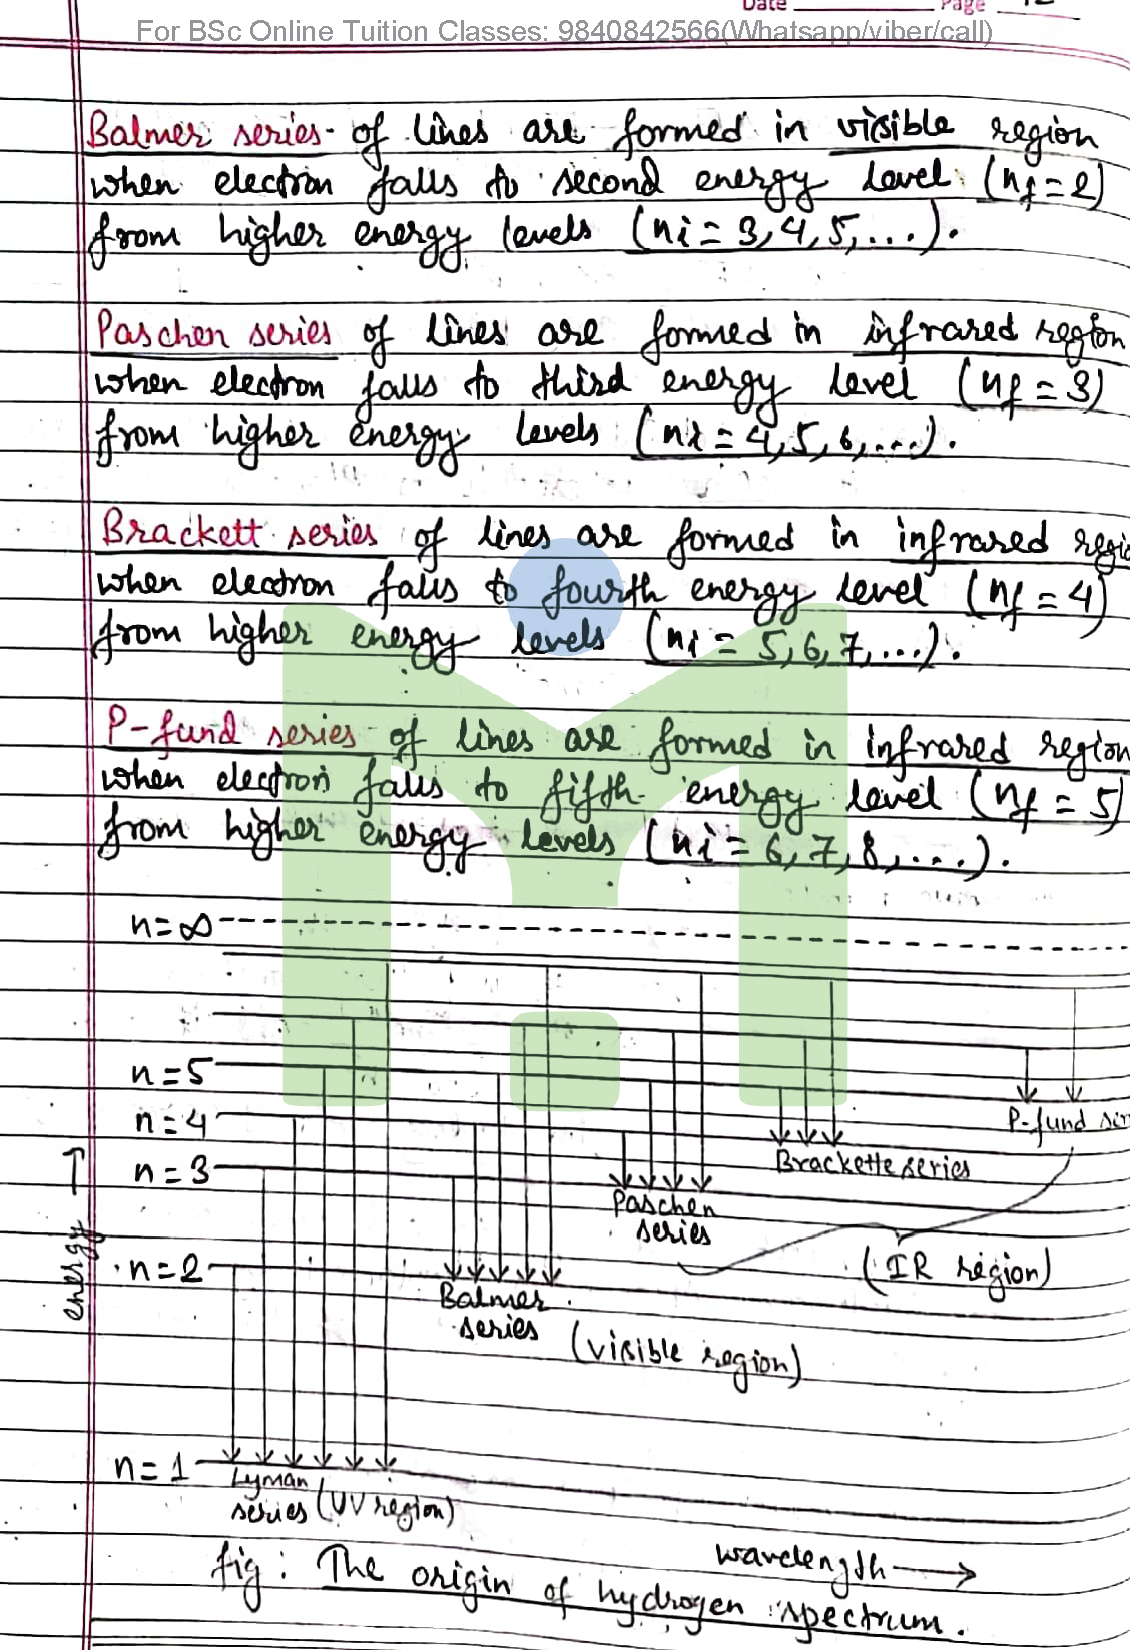 Date Page
For BSc Online Tuition Classes: 9840842566(Whatsapp/viber/call)
Balmer series of lines are formed in visible region
when electron falls to second energy level (nf=2)
from higher energy levels (ni = 3,4,5,...).
Paschen series of lines are formed in infrared region
when electron falls to third energy level (nf = 3)
from higher energy levels (ni = 4,5,6,...).
Brackett series of lines are formed in infrared regio
when electron falls to fourth energy level (nf = 4)
from higher energy levels (ni = 5,6,7,...).
P-fund series of lines are formed in infrared region
when electron falls to fifth energy level (nf = 5)
from higher energy levels (ni = 6,7,8,...).
n=∞
n=5
n=4
P-fund
n=3
Brackette series
Paschen
series
energy
n=2
(IR region)
Balmer
series (visible region)
n=1
Lyman
series (UV region)
wavelength
fig: The origin of hydrogen spectrum.